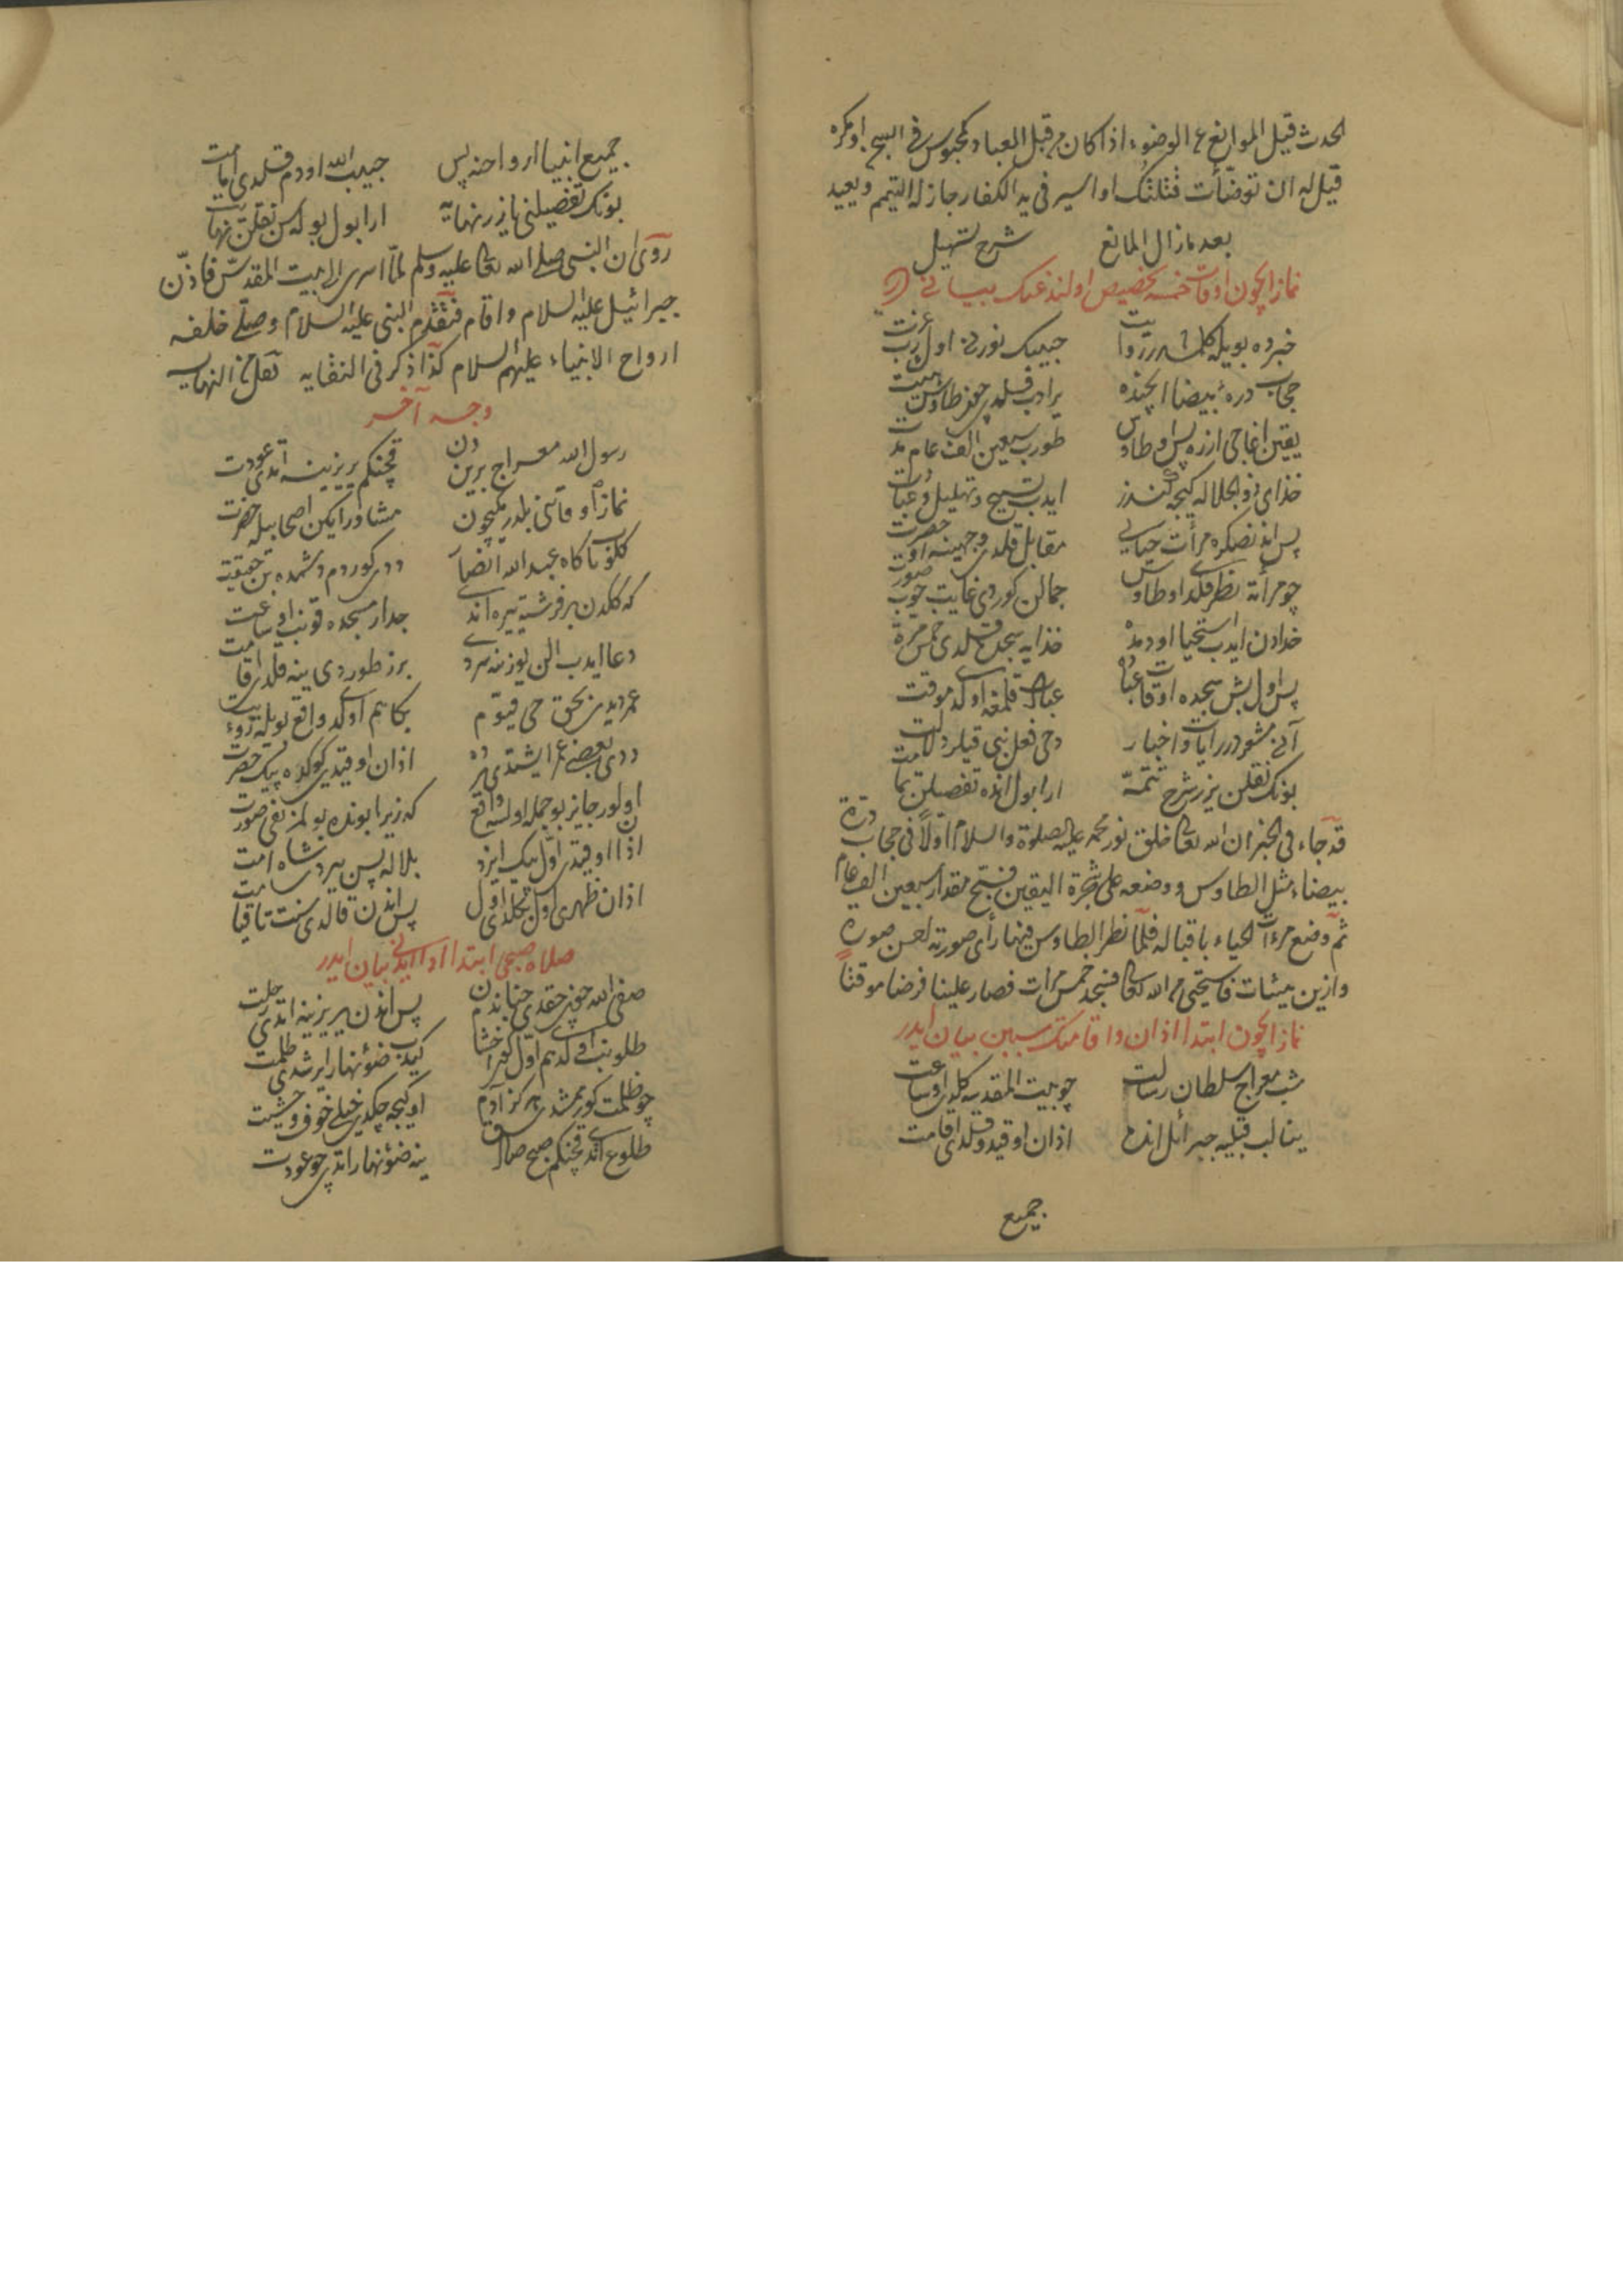 الحدث قيل الموانع ع الوضوء اذا كان م قبل العباد كمحبوس فى السجن او مكره
قيل له ان توضأت قتلتك او اسير فى يد الكفار جاز له التيمم ويعيد
بعد ما زال المانع شرح تسهيل
نماز ايچون اوقات خمسه تخصيص اولندغنك بيانى
خبرده بويله كلمشدر روايت حبيبك نورنى اول رب عزت
حجاب دره بيضا ايچنده يرادب قلدى چون طاوس هيئت
يقين اغاجى ازره پس او طاوس طورب سبعين الف عام مدت
خداى ذو الجلاله كيجه كندز ايدب تسبيح وتهليل وعبادت
پس اندنصكره مرأت حيايى مقابل قلدى وجهينه او حضرت
چو مرأته نظر قلدى او طاوس جمالن كوردى غايت خوب صورت
خدادن ايدب استحيا او دمده خدايه سجده قلدى خمس مرة
پس اول بش سجده اوقات عباده عباد قلمغه اولدى موقت
انى مشعردر آيات واخبار دخى فعل نبى قيلر دلالت
بونك نقلن يزر شرح تتمه ارا بول انده تفصيلن تمامت
قد جاء فى الخبر ان الله تعالى خلق نور محمد عليه الصلوة والسلام اولا فى حجاب درة
بيضاء مثل الطاوس ووضعه على شجرة اليقين فسبح مقدار سبعين الف عام
ثم وضع مرءات الحياء باقباله فلما نظر الطاوس فيها رأى صورته احسن صورة
وازين هيئات فاستحيى م الله تعالى فسجد خمس مرات فصار علينا فرضا موقتا
نماز ايچون ابتدا اذان واقامتك سببن بيان ايدر
شب معراج سلطان رسالت چو بيت المقدسه كلدى او ساعت
ينالب قبليه جبرائل انده اذان اوقيدو قلدى اقامت
جميع
جميع انبيا ارواحنه پس حبيب الله او دم قلدى امامت
بونك تفضيلنى يازر نهايه ارا بول بوله سن نقلن نهايت
روى ان النبى صلى الله تعالى عليه وسلم لما اسرى الى بيت المقدس فاذن
جبرائيل عليه السلام واقام فتقدم النبى عليه السلام وصلى خلفه
ارواح الانبياء عليهم السلام كذا ذكر فى النقايه نقل من النهايه
وجه آخر
رسول الله معراج بريندن قچنكم ير يزينه اتدى عودت
نماز اوقاتنى بلدرمكيچون مشاور ايكن اصحابيله حضرت
كلوب ناكاه عبد الله انصار ددى كوردم دشمده بن حقيقت
كه كلدن بر فرشته يره اندى جدار مسجده قونب او ساعت
دعا ايدب الن يوزنه سردى برز طوردى ينه قلدى اقامت
عمر ديدى بحق حى قيوم بكا هم اولدى واقع بويله رؤيت
ددى بعضى عمر ايشتدى اذان اوقيدى كوكده پيك حضرت
اولور جايز بو جمله اولسه واقع كه زيرا بونده بولمز نفى صورت
اذان اوقيدى اول پيك ايزد بلاله پس يردى شاه امت
اذان ظهرى اول قلدى اول پس اندن قالدى سنت تا قيامت
صلاه صبحى ابتدا ادا ايدنى بيان ايدر
صفى الله چون چقدى جناندن پس اندن ير يزينه اتدى رحلت
كيدب ضوء نهار ايرشدى ظلمت
چو ظلمت كورممشدى هركز آدم او كيجه چكدى خيلى خوف وخشيت
طلوع اتدى قچنكم صبح صادق ينه ضوء نهار اتدى چو عودت